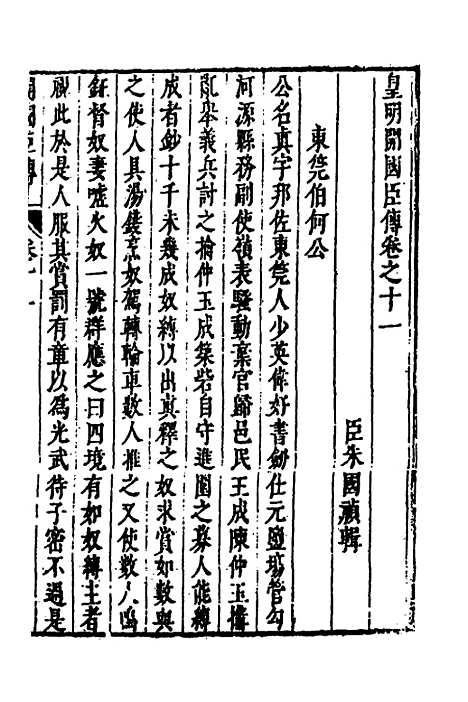 皇明開國臣傳卷之十一
臣朱國禎輯
東莞伯何公
公名真字邦佐東莞人少英偉好書劍仕元鹽場管勾
河源縣務副使嶺表騷動棄官歸邑民王成陳仲玉搆
亂舉義兵討之擒仲玉成築砦自守進圍之募人能縛
成者鈔十千未幾成奴縛以出真釋之奴求賞如數與
之使人具湯鑊烹奴駕轉輪車數人推之又使數人鳴
鉦督奴妻噓火奴一號群應之曰四境有如奴縛主者
視此於是人服其賞罰有童以爲光武待子密不過是